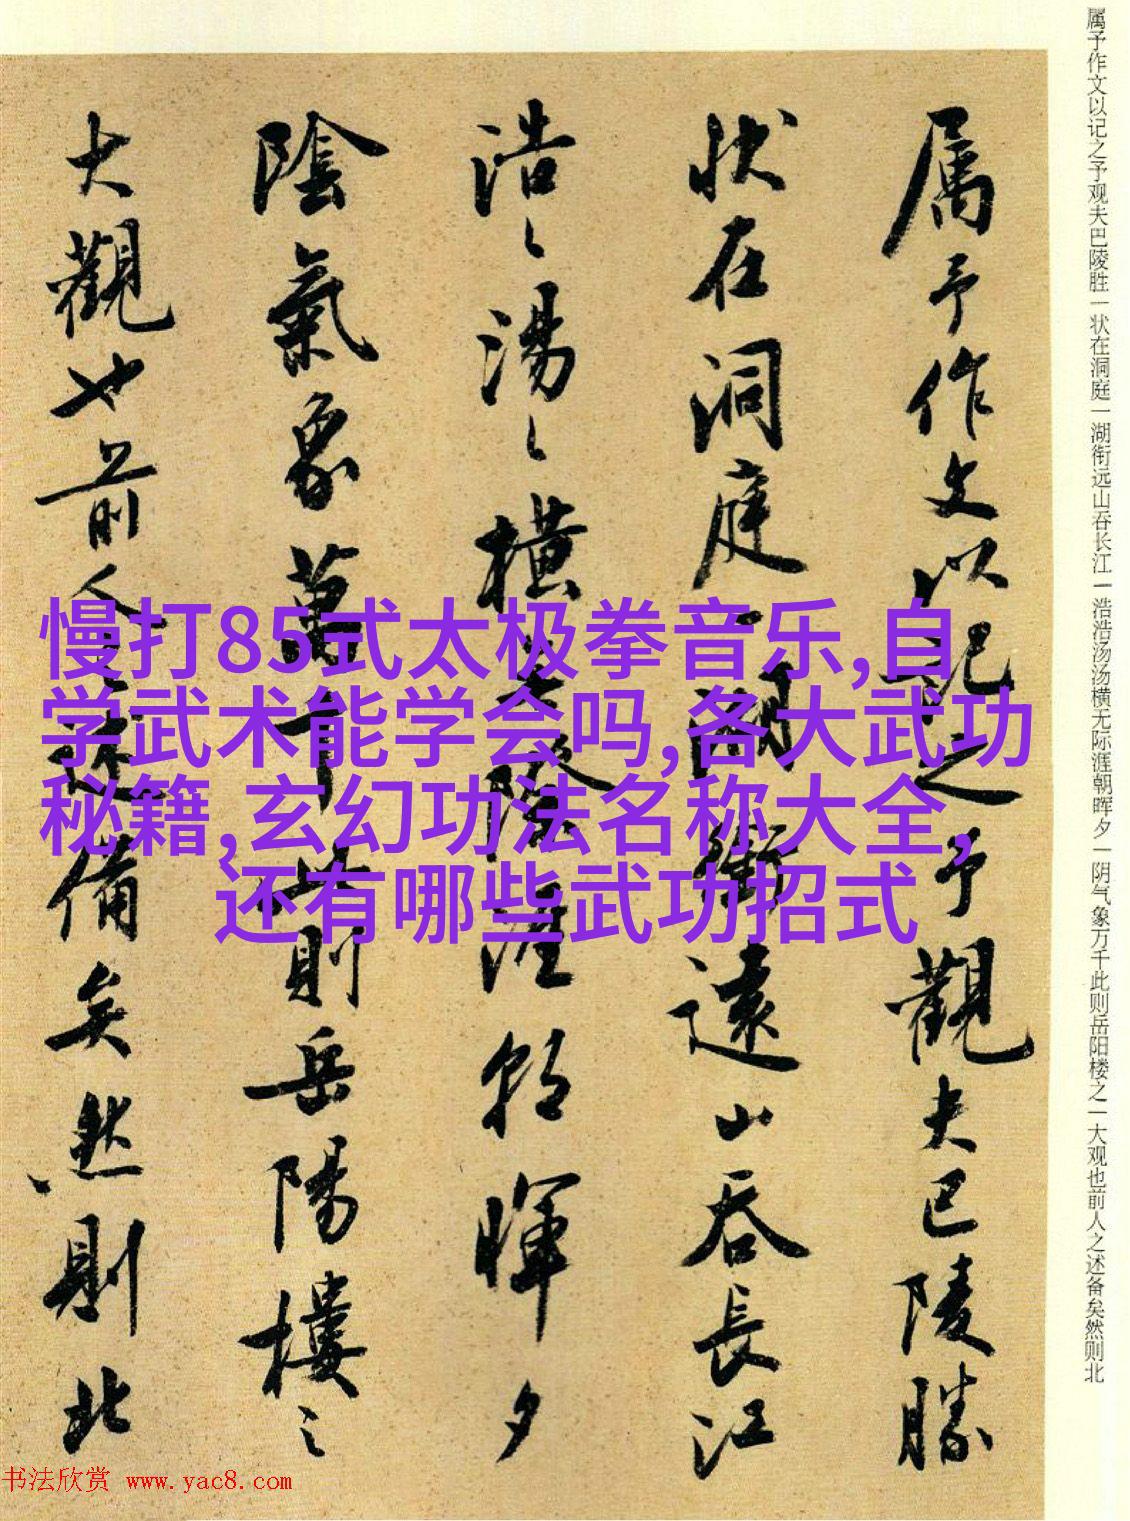 属予作文以记之予观夫巴陵胜一状在洞庭一湖衔远山吞长江一浩浩汤汤横无际涯朝晖夕一阴气象万千此则岳阳楼之一大观也前人之述备矣然则北
属予作文以记之予觀夫巴陵勝
状在洞庭一湖銜遠山吞長江
浩〻湯〻橫無際涯朝暉夕
陰氣象萬千此則岳陽樓之
大觀也前人之述備矣然則北
慢打85式太极拳音乐,自
学武术能学会吗,各大武功
秘籍,玄幻功法名称大全,
还有哪些武功招式
书法欣赏 www.yac8.com